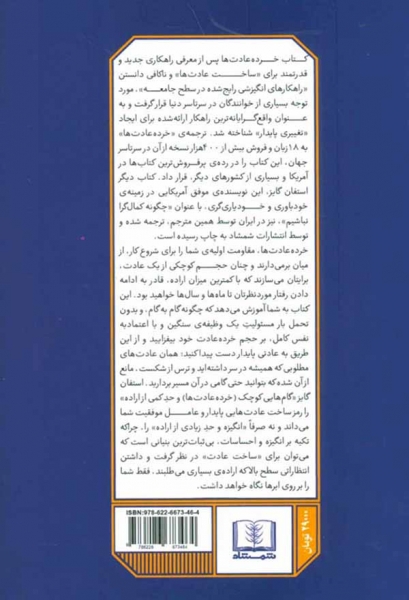 کتاب خرده‌عادت‌ها پس از معرفی راهکاری جدید و
قدرتمند برای «ساخت عادت‌ها» و ناکافی دانستن
«راهکارهای انگیزشی رایج‌شده در سطح جامعه»، مورد
توجه بسیاری از خوانندگان در سرتاسر دنیا قرار گرفت و به
عنوان واقع‌گرایانه‌ترین راهکار ارائه‌شده برای ایجاد
«تغییری پایدار» شناخته شد. ترجمه‌ی «خرده‌عادت‌ها»
به ۱۸ زبان و فروش بیش از ۴۰۰هزار نسخه از آن در سرتاسر
جهان، این کتاب را در رده‌ی پرفروش‌ترین کتاب‌ها در
آمریکا و بسیاری از کشورهای دیگر، قرار داد. کتاب دیگر
استفان گایز، این نویسنده‌ی موفق آمریکایی در زمینه‌ی
خودباوری و خودیاری‌گری، با عنوان «چگونه کمال‌گرا
نباشیم»، نیز در ایران توسط همین مترجم، ترجمه شده و
توسط انتشارات شمشاد به چاپ رسیده است.
خرده‌عادت‌ها، مقاومت اولیه‌ی شما را برای شروع کار، از
میان برمی‌دارند و چنان حجم کوچکی از یک عادت،
برایتان می‌سازند که با کمترین میزان اراده، قادر به ادامه
دادن رفتار موردنظرتان تا ماه‌ها و سال‌ها خواهید بود. این
کتاب به شما آموزش می‌دهد که چگونه گام به گام، و بدون
تحمل بار مسئولیتِ یک وظیفه‌ی سنگین و با اعتمادبه
نفس کامل، بر حجم خرده‌عادت خود بیفزایید و از این
طریق به عادتی پایدار دست پیدا کنید: همان عادت‌های
مطلوبی که همیشه در سر داشته‌اید و ترس از شکست، مانع
از آن شده که بتوانید حتی گامی در آن مسیر بردارید. استفان
گایز «گام‌هایی کوچک (خرده‌عادت‌ها) و حدِ کمی از اراده»
را رمز ساخت عادت‌هایی پایدار و عاملِ موفقیت شما
می‌داند و نه صرفاً «انگیزه و حدِ زیادی از اراده» را. چراکه
تکیه بر انگیزه و احساسات، بی‌ثبات‌ترین بنیانی است که
می‌توان برای «ساخت عادت» در نظر گرفت و داشتن
انتظاراتی سطح بالا که اراده‌ی بسیاری می‌طلبند. فقط شما
را بر روی ابرها نگاه خواهد داشت.
ISBN: 978-622-6673-46-4
9 786226 673464
شمشاد
۲۹۰۰۰ تومان